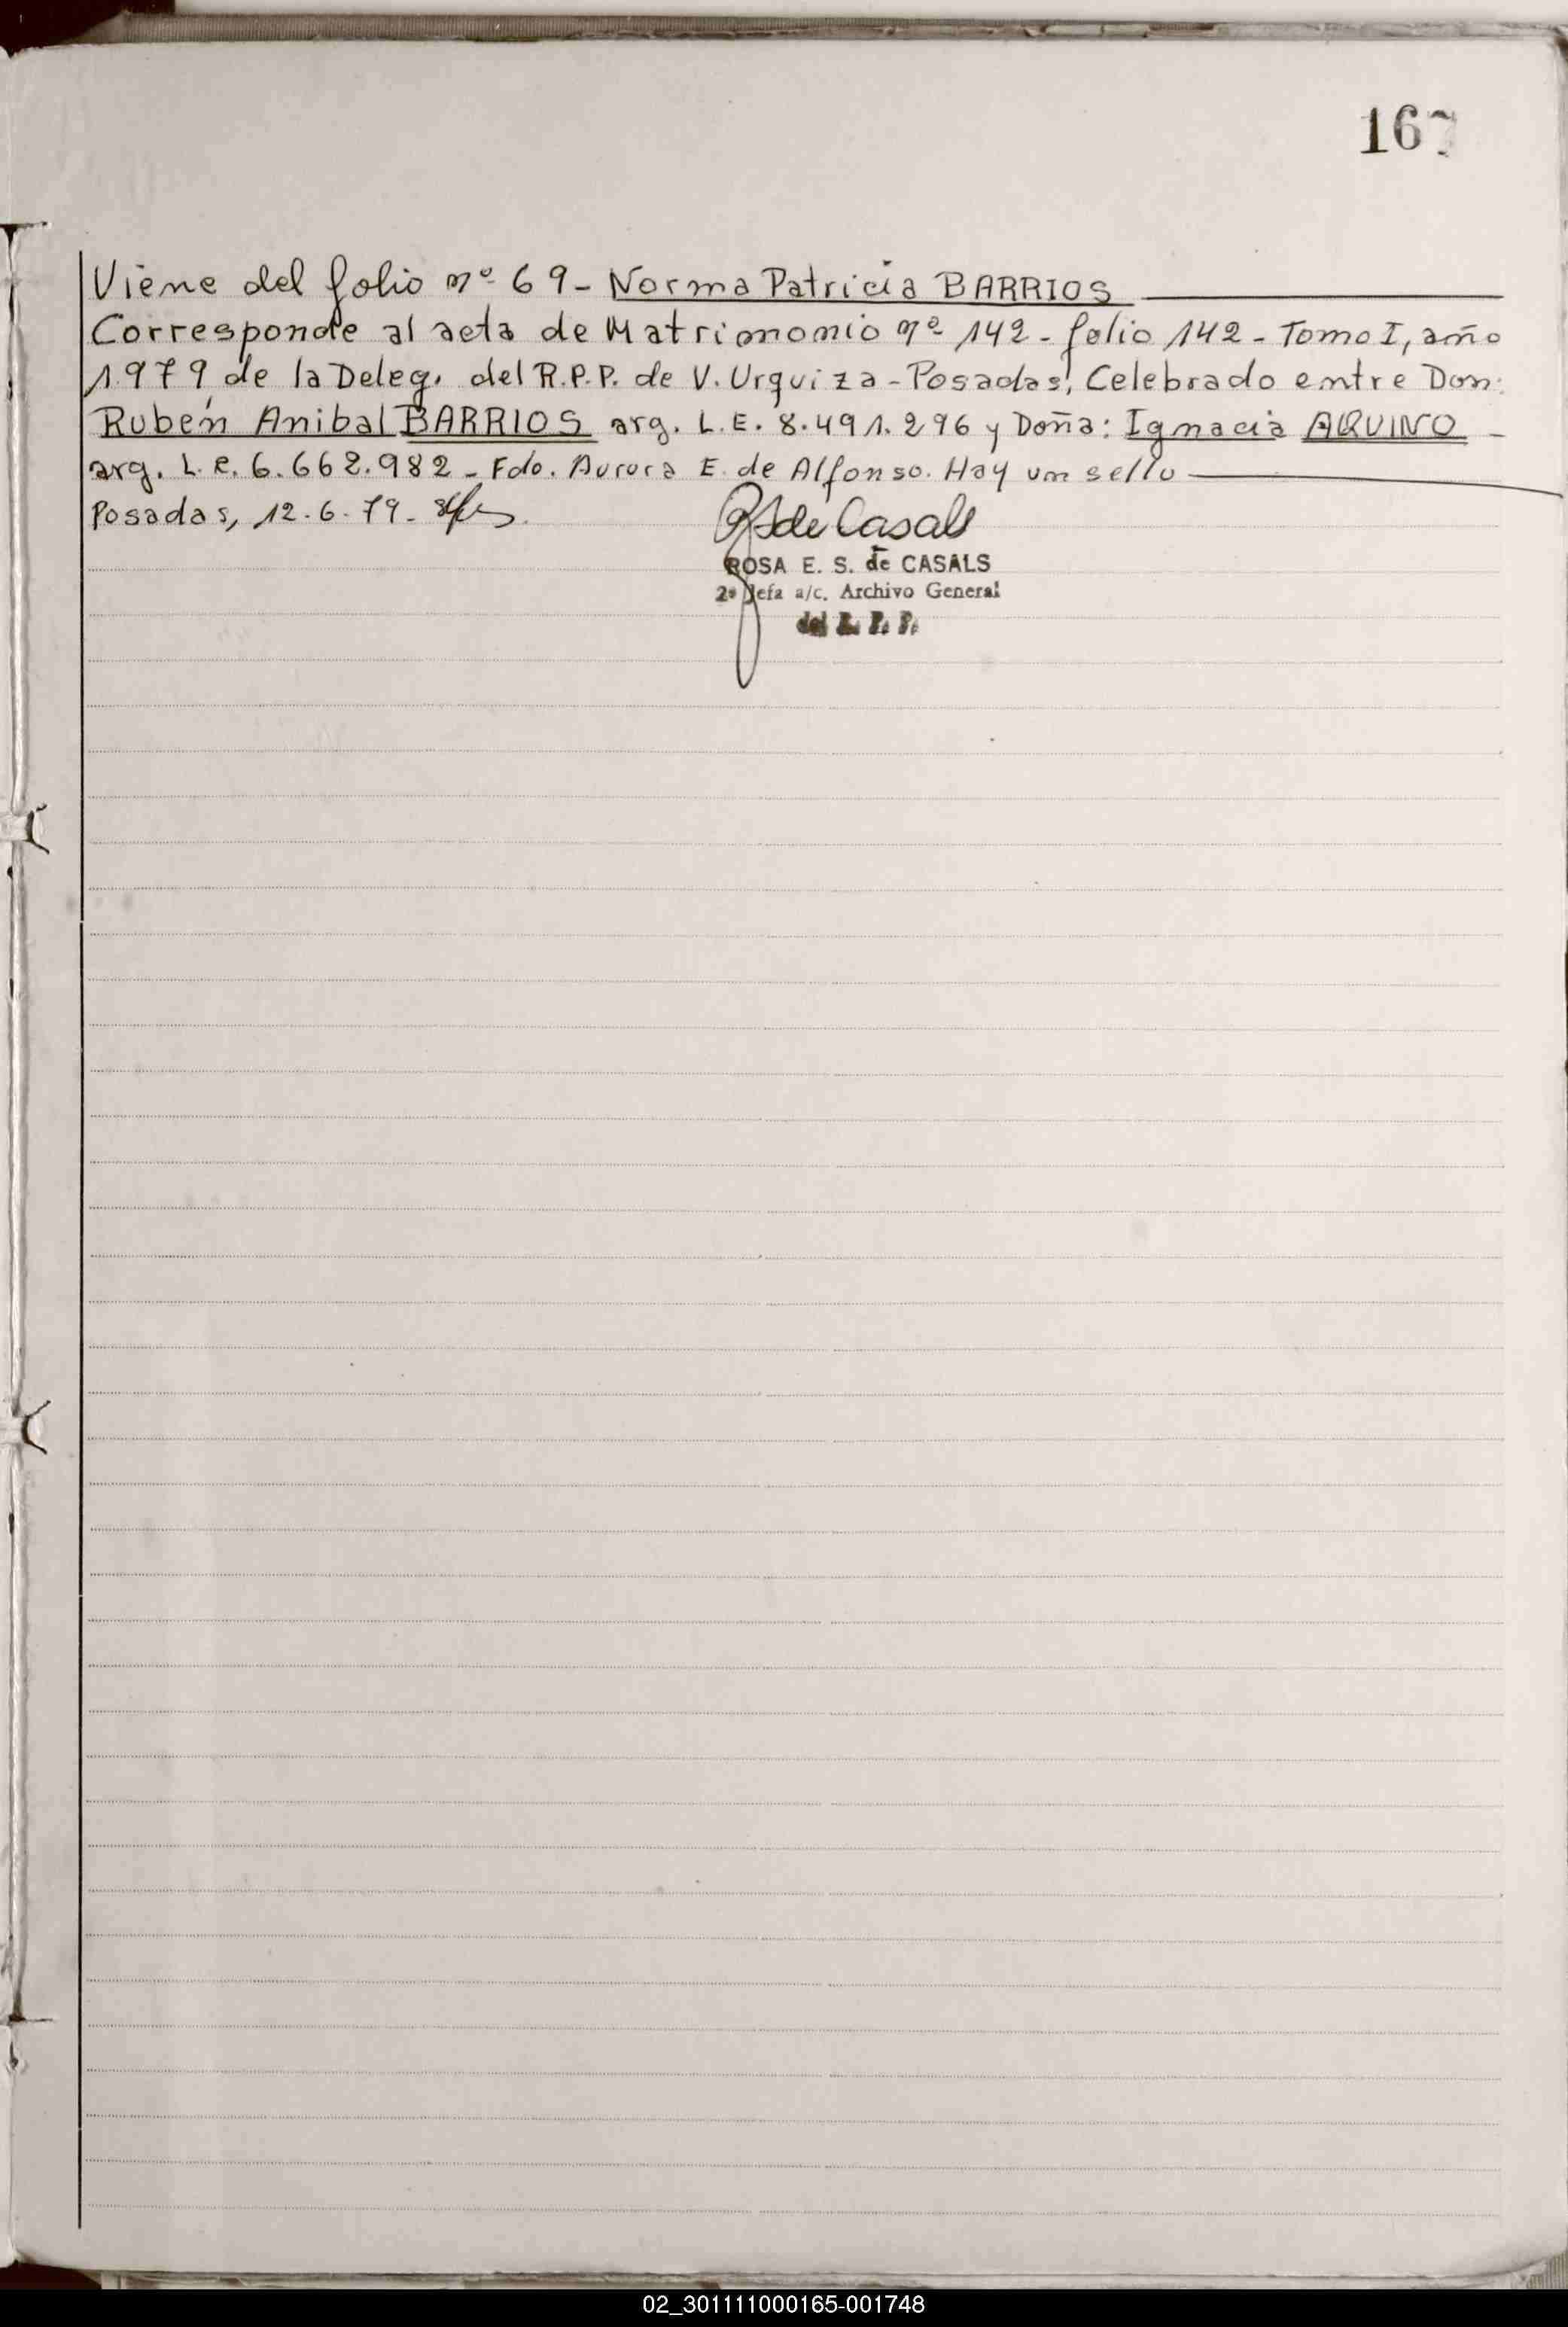 167
Viene del folio nº 69 - Norma Patricia BARRIOS
Corresponde al acta de Matrimonio nº 142 - folio 142 - Tomo I, año
1.979, de la Deleg. del R.P.P. de V. Urquiza - Posadas, Celebrado entre Don:
Rubén Anibal BARRIOS arg. L.E. 8.491.296 y Doña: Ignacia AQUINO -
arg. L.E. 6.662.982 - Fdo. Aurora E. de Alfonso. Hay un sello
Posadas, 12.6.79 -
de Casals
ROSA E. S. de CASALS
2ª Jefa a/c. Archivo General
del R. P. P.
02_301111000165-001748